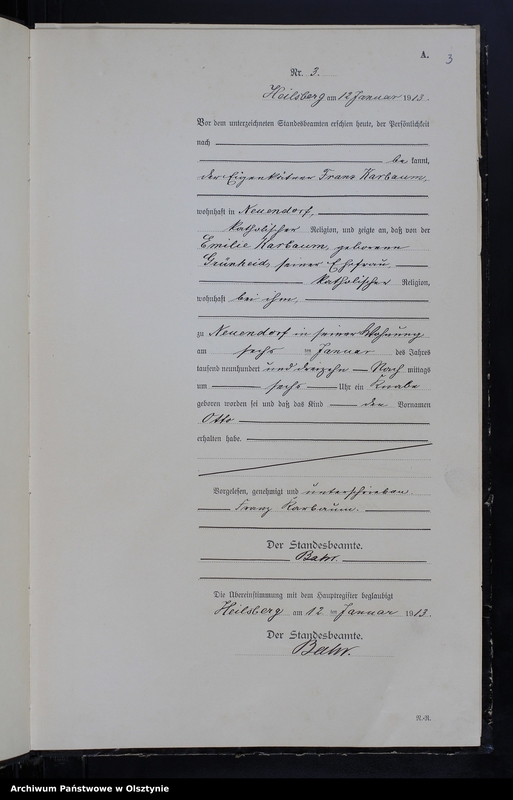 A.
3
Nr. 3.
Heilsberg am 12 Januar 1913.
Vor dem unterzeichneten Standesbeamten erschien heute, der Persönlichkeit
nach
be kannt,
der Eigenkätner Franz Karbaum,
wohnhaft in Neuendorf,
katholischer Religion, und zeigte an, daß von der
Emilie Karbaum, geborenen
Grünheid, seiner Ehefrau,
katholischer Religion,
wohnhaft bei ihm,
zu Neuendorf in seiner Wohnung
am sechs ten Januar des Jahres
tausend neunhundert und dreizehn Nach mittags
um sechs Uhr ein Knabe
geboren worden sei und daß das Kind den Vornamen
Otto
erhalten habe.
Vorgelesen, genehmigt und unterschrieben
Franz Karbaum.
Der Standesbeamte.
Die Übereinstimmung mit dem Hauptregister beglaubigt
Heilsberg am 12 ten Januar 1913.
Der Standesbeamte.
Archiwum Państwowe w Olsztynie